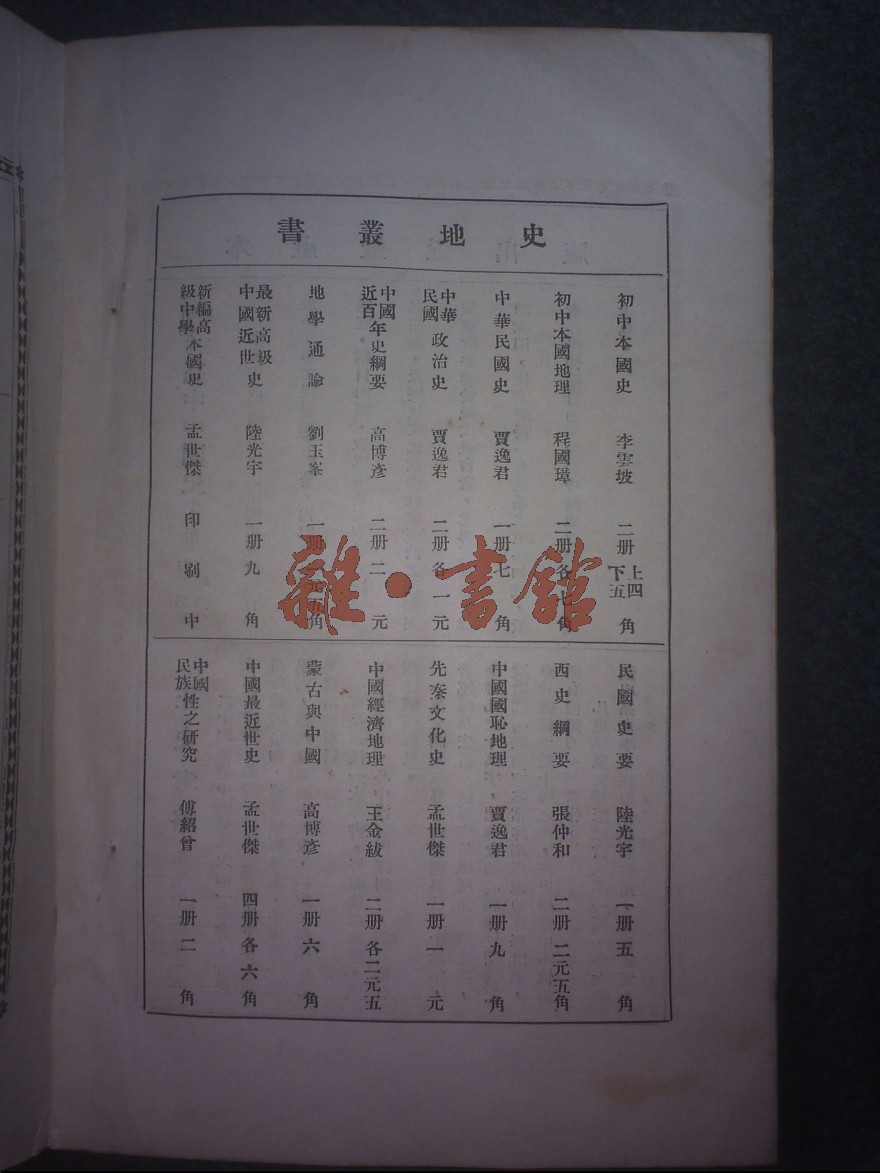 史地叢書
初中本國史 李雲坡 二册 上四下五角
初中本國地理 程國璋 二册各七角
中華民國史 賈逸君 一册七角
中華民國政治史 賈逸君 二册各一元
中國近百年史綱要 高博彥 二册二元
地學通論 劉玉峯 一册 角
最新高級中國近世史 陸光宇 一册九角
新編高級中學本國史 孟世傑 印刷中
民國史要 陸光宇 一册五角
西史綱要 張仲和 二册二元五角
中國國恥地理 賈逸君 一册九角
先秦文化史 孟世傑 一册一元
中國經濟地理 王金紱 二册各二元五
蒙古與中國 高博彥 一册六角
中國最近世史 孟世傑 四册各六角
中國民族性之研究 傅紹曾 一册二角
雜·書館